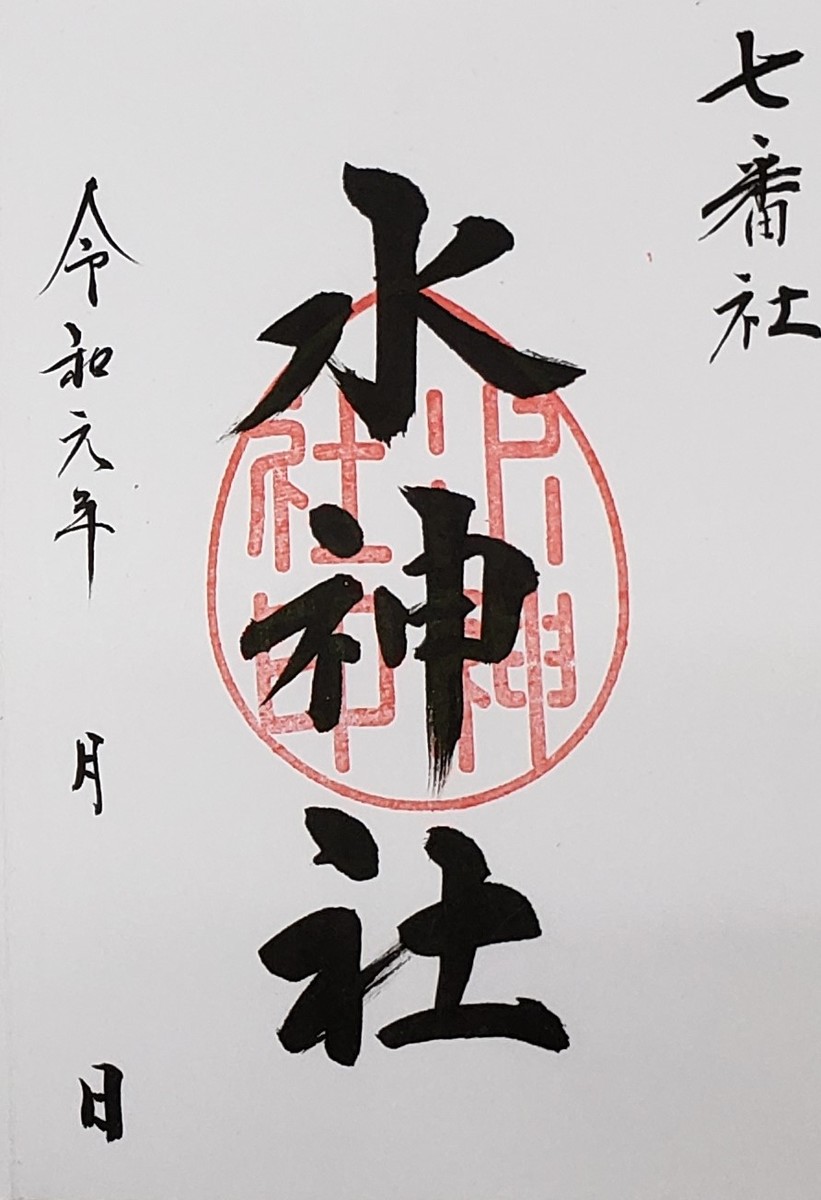 七番社
水神社
水神社印
令和元年 月 日